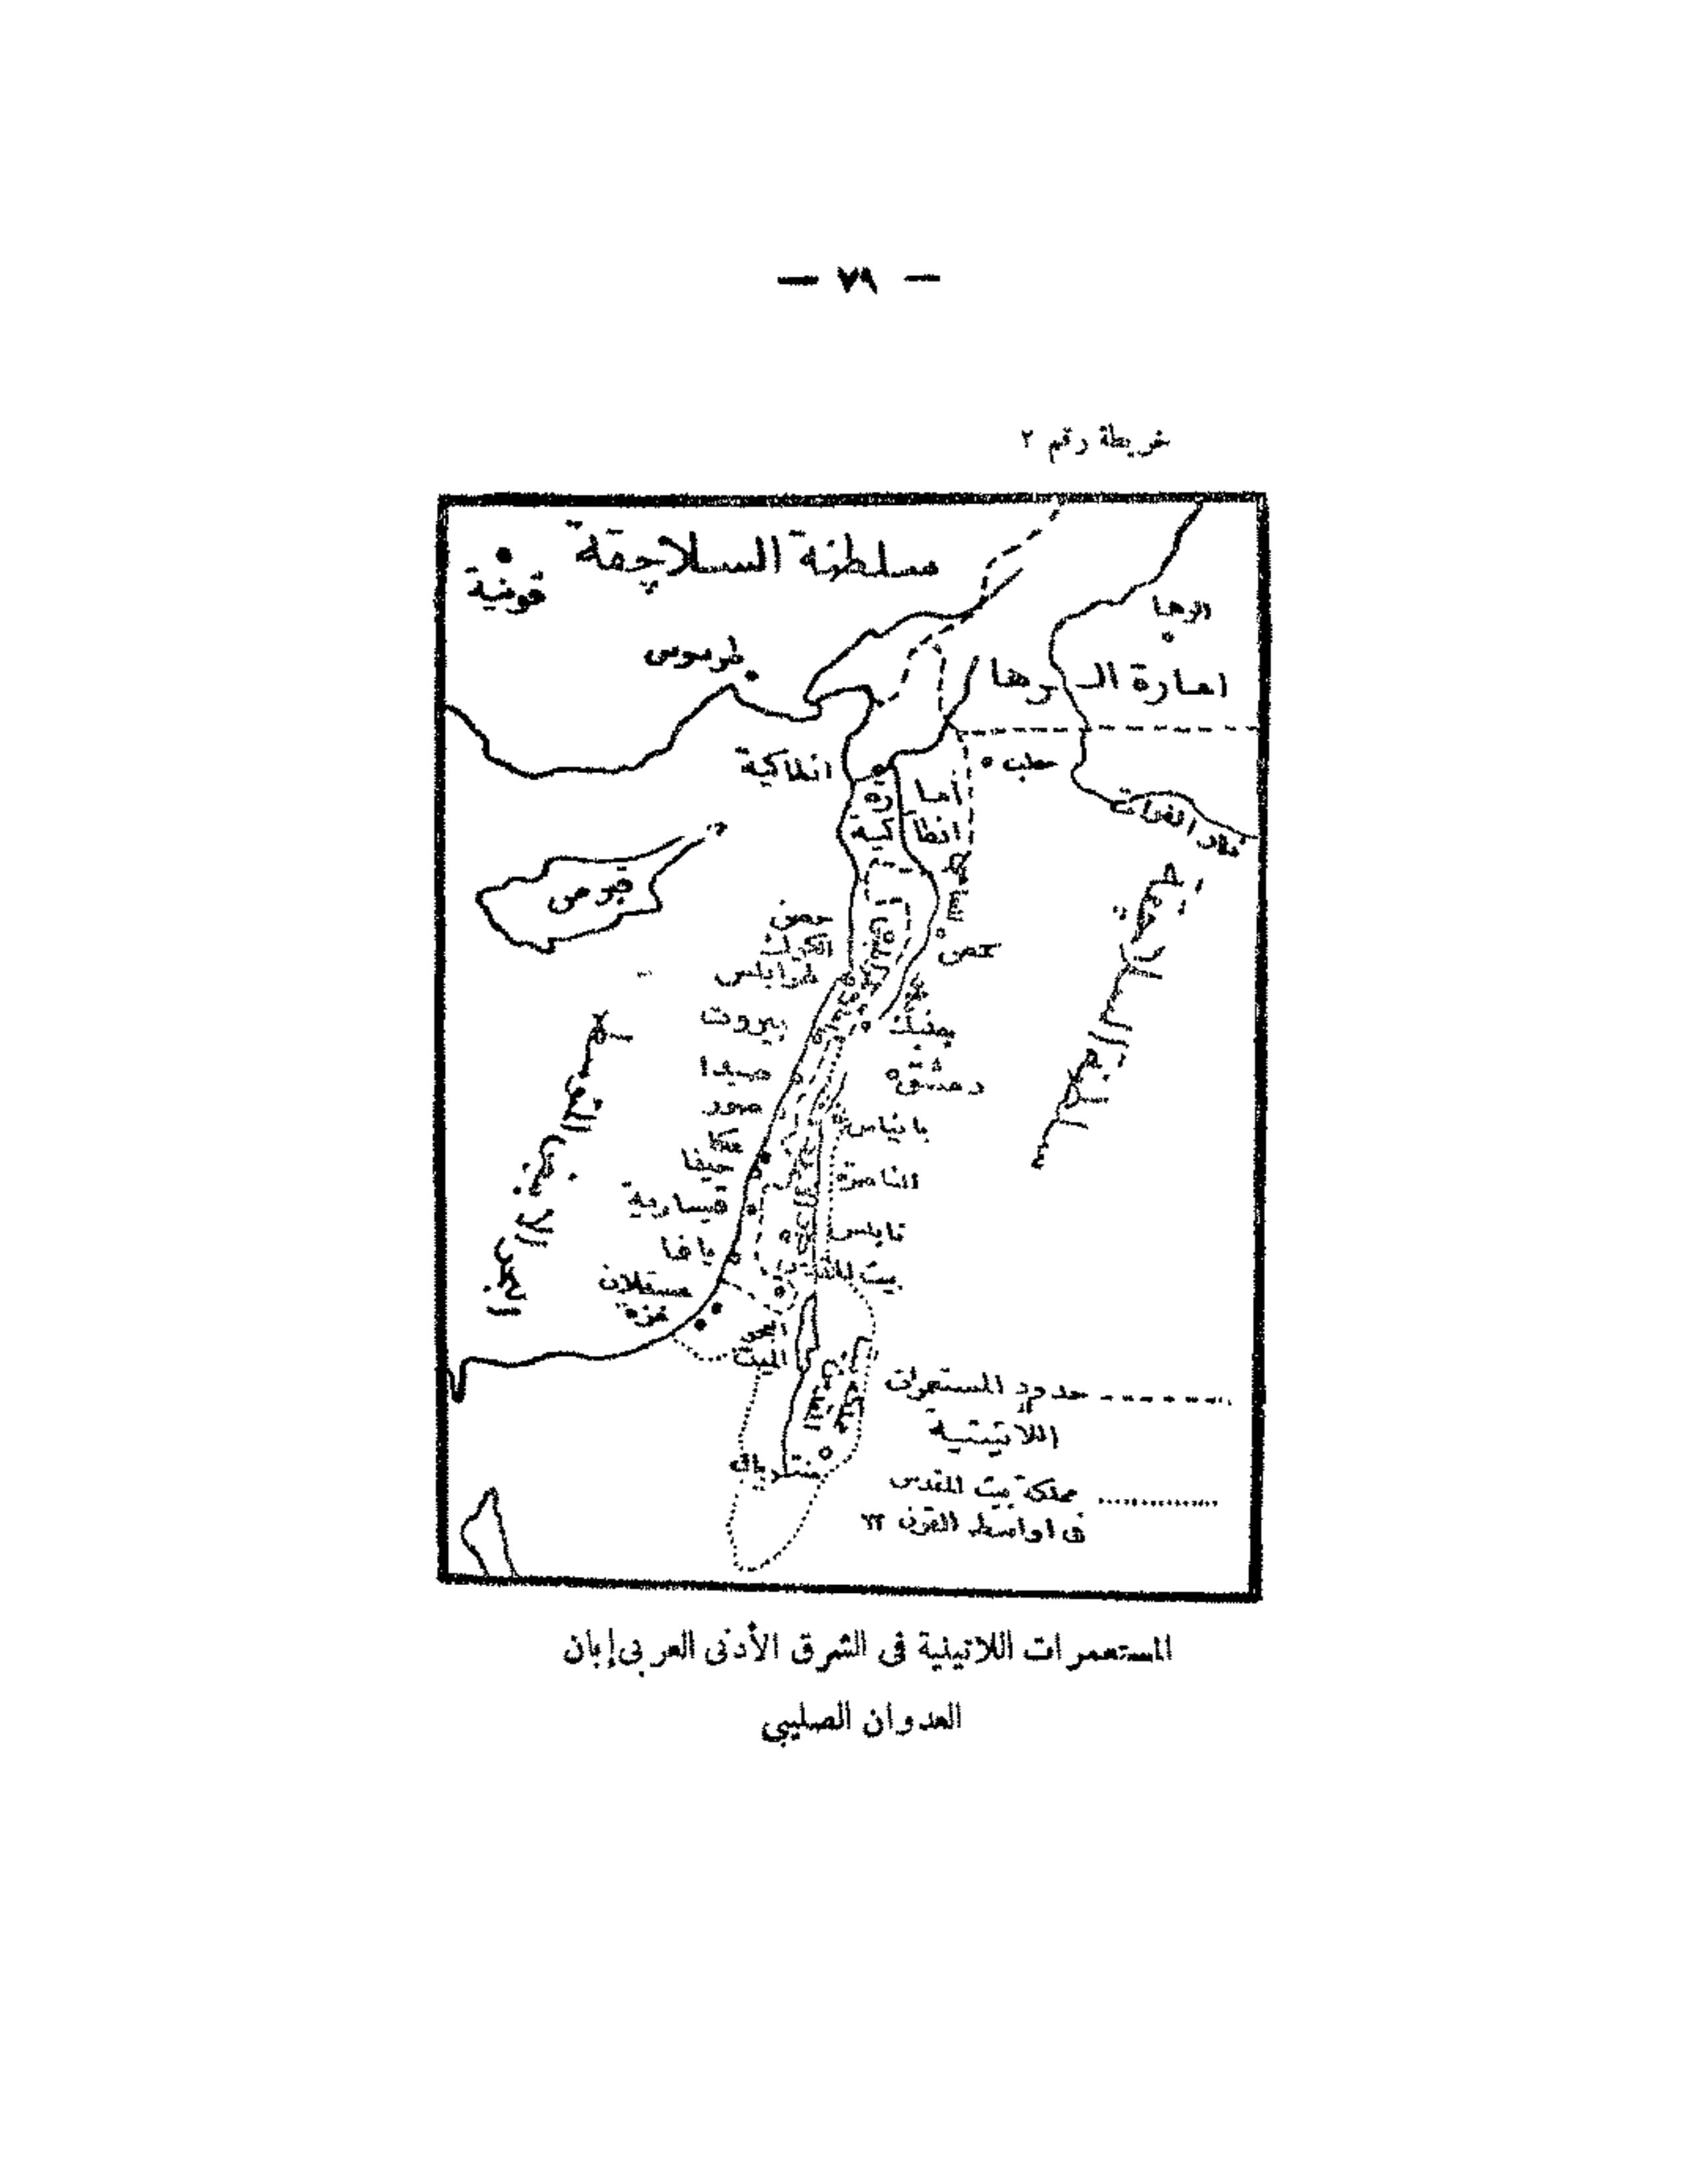 — ٧٩ —
خريطة رقم ٢
سلطنة السلاجقة
قونية
الرها
طرسوس
امارة الرها
حلب
انطاكية
امارة
انطاكية
نهر الفرات
قبرص
حصن
طرابلس
حمص
بيروت
بعلبك
صيدا
دمشق
صور
بانياس
عكا
حيفا
الناصرة
قيسارية
نابلس
يافا
بيت المقدس
عسقلان
غزة
البحر
الميت
البحر الابيض المتوسط
سلطنة السلاجقة
حدود المستعمرات
اللاتينية
مملكة بيت المقدس
فى اواسط القرن ١٢
المستعمرات اللاتينية فى الشرق الأدنى العربى إبان
العدوان الصليبي